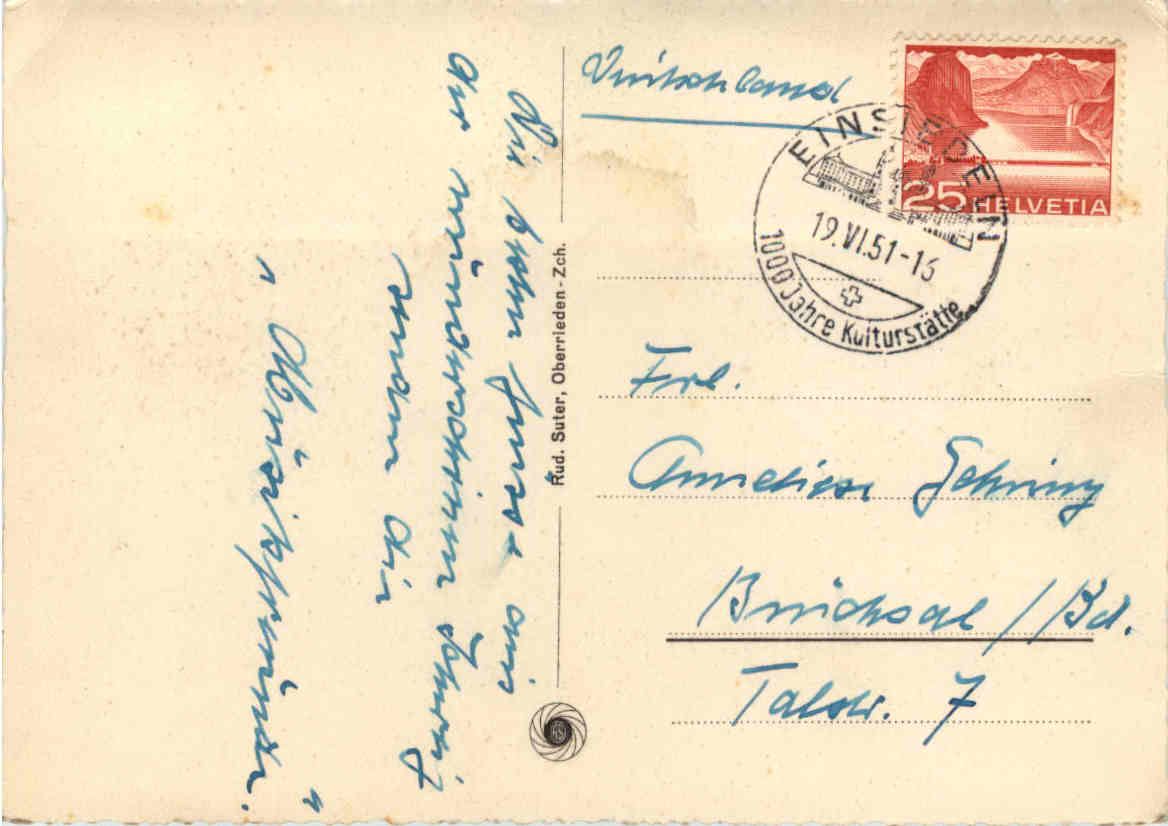 Deutschland
EINSIEDELN
19.VI.51-16
1000 Jahre Kulturstätte
25 HELVETIA
Frl.
Anneliese Gehring
Bruchsal / Bd.
Talstr. 7
Rud. Suter, Oberrieden-Zch.
Die besten Grüsse aus
der wunderschönen Schweiz
senden dir
" Musikfreunde. "